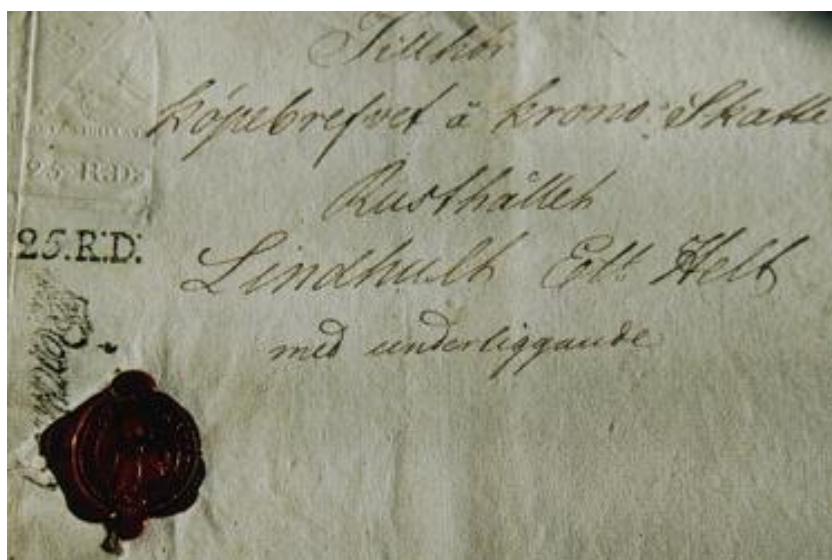 Tillhör
köpebrefvet å krono: Skatte
Rusthållet
Lindhult Ett Helt
med underliggande
25 R:D:
25.R:D: